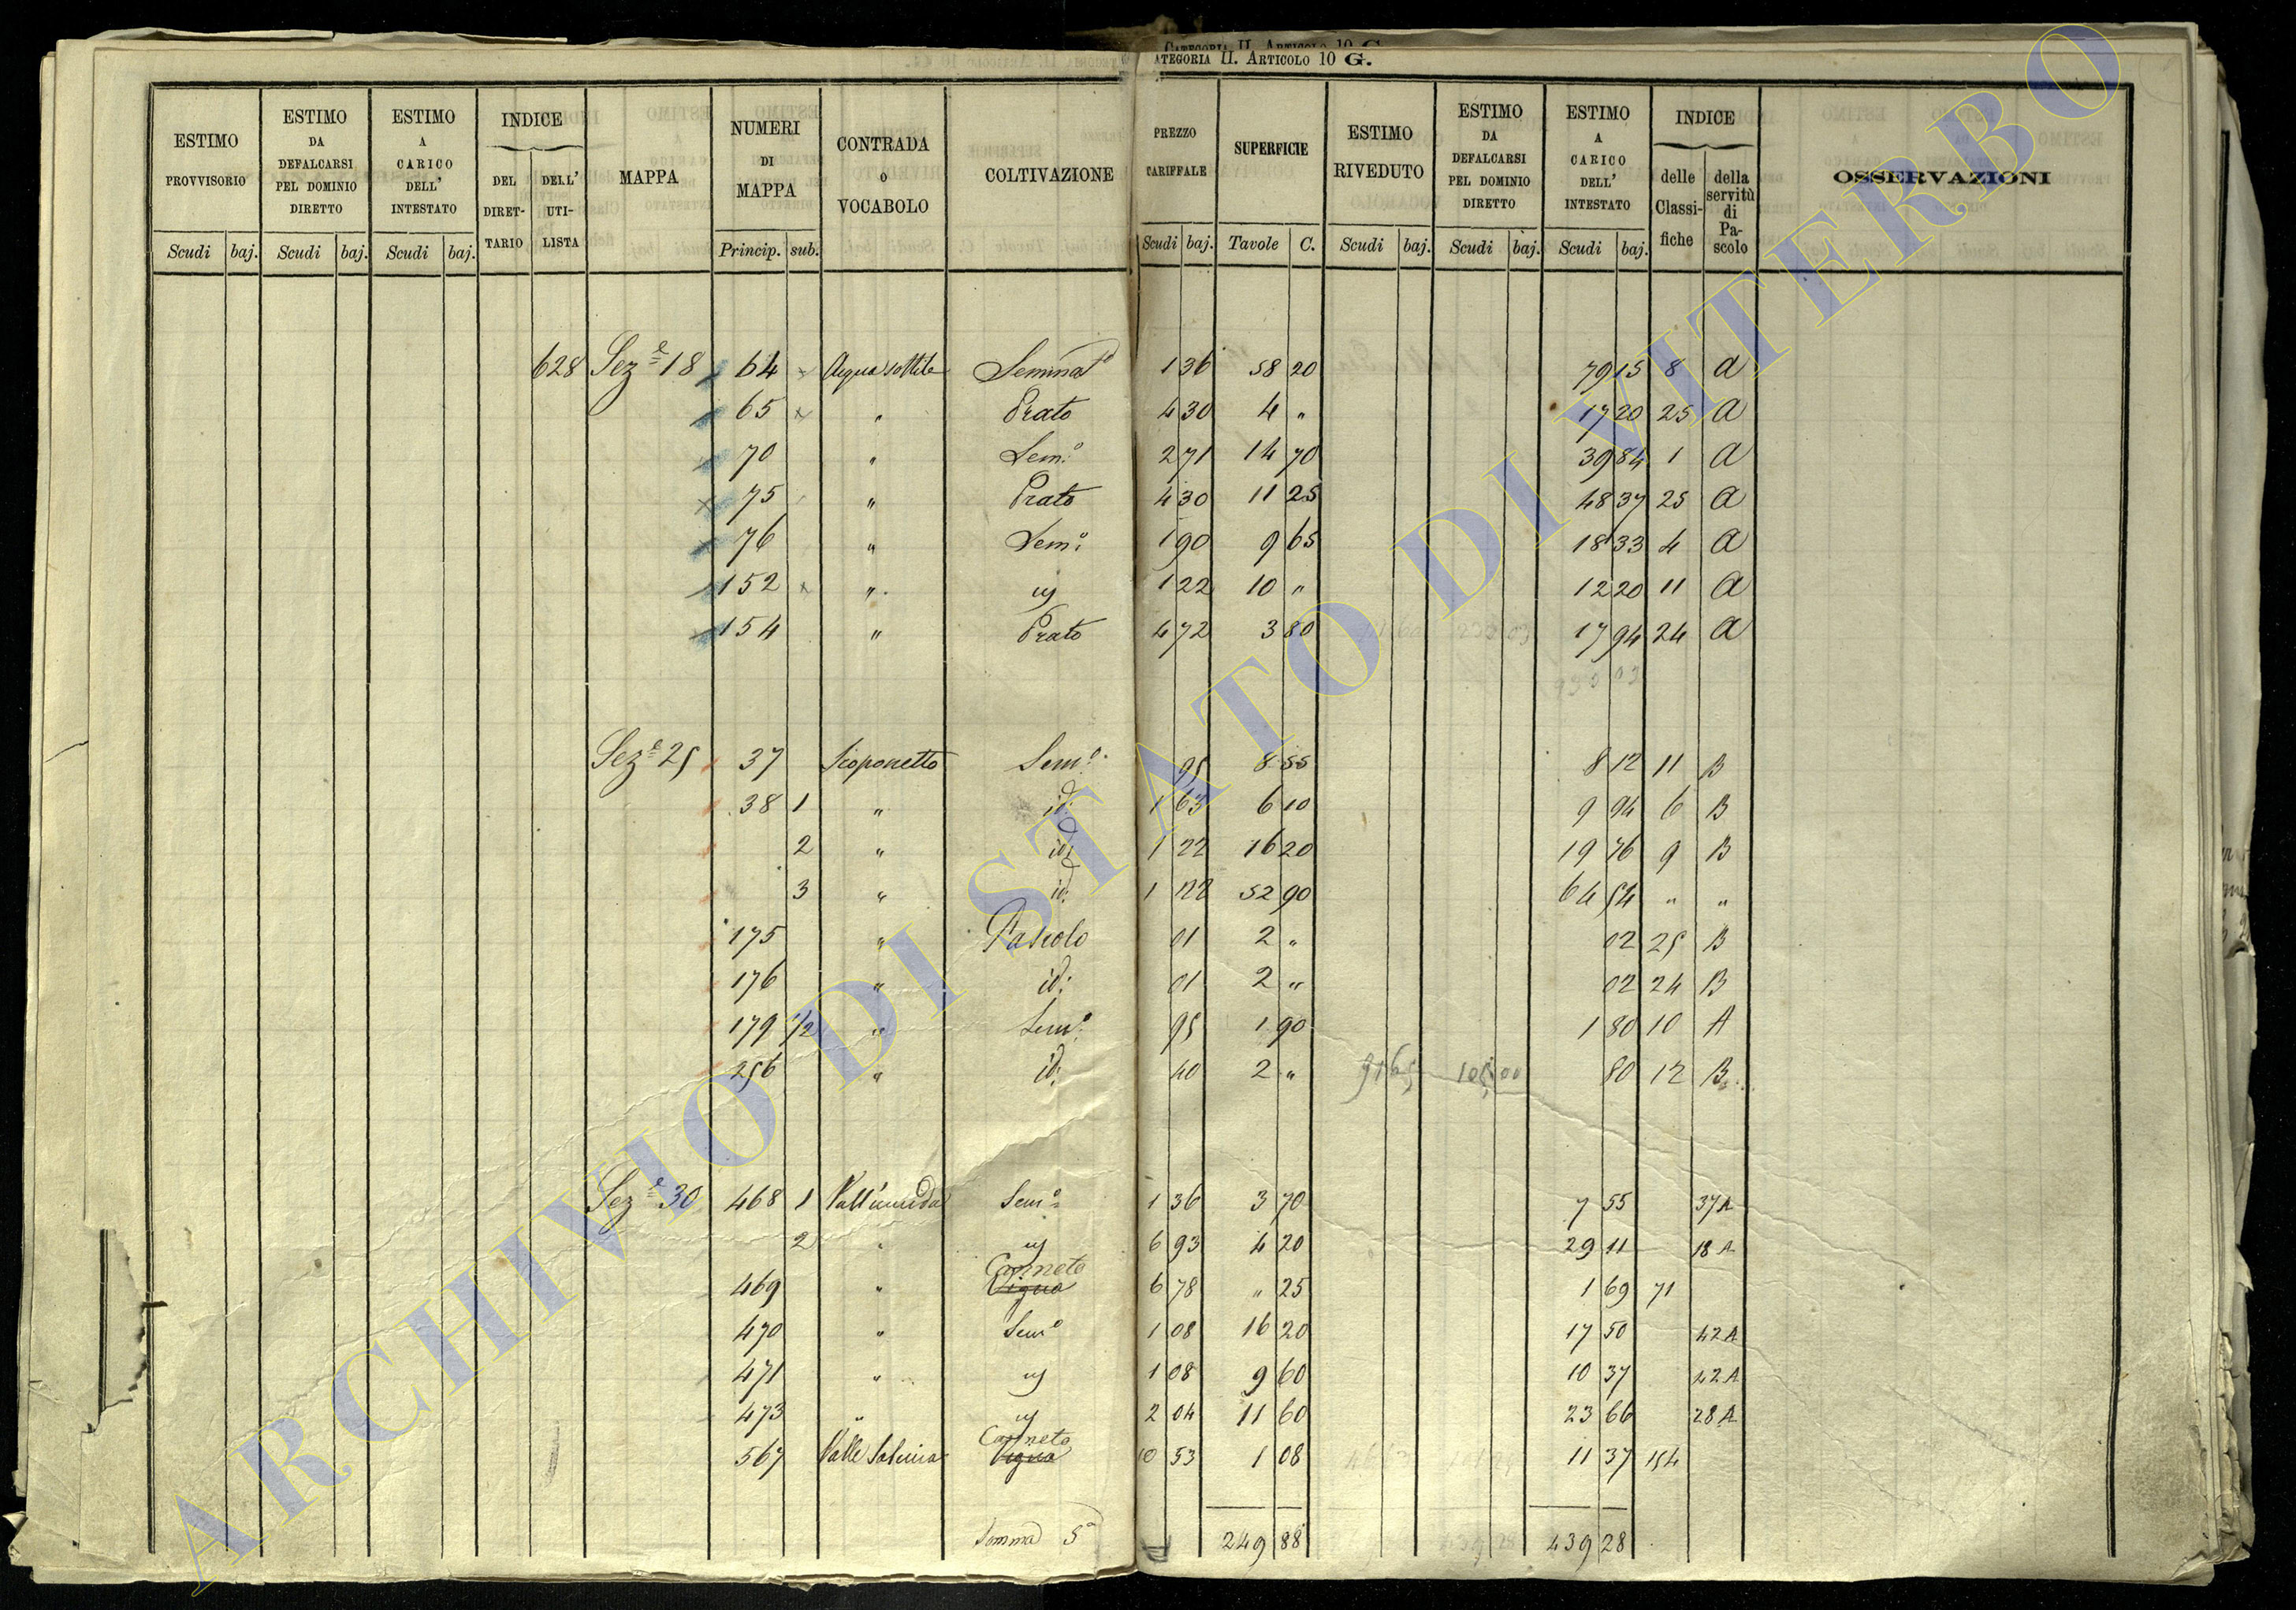 CATEGORIA II. ARTICOLO 10 G.
ATEGORIA II. ARTICOLO 10 G.
ESTIMO PROVVISORIO Scudi baj.
ESTIMO DA DEFALCARSI PEL DOMINIO DIRETTO Scudi baj.
ESTIMO A CARICO DELL' INTESTATO Scudi baj.
INDICE DEL DIRET-TARIO DELL' UTI-LISTA
MAPPA
NUMERI DI MAPPA Princip. sub.
CONTRADA O VOCABOLO
COLTIVAZIONE
PREZZO CARIFFALE Scudi baj.
SUPERFICIE Tavole C.
ESTIMO RIVEDUTO Scudi baj.
ESTIMO DA DEFALCARSI PEL DOMINIO DIRETTO Scudi baj.
ESTIMO A CARICO DELL' INTESTATO Scudi baj.
INDICE delle Classi-fiche della servitù di Pa-scolo
OSSERVAZIONI
628 Sez.e 18 64 Acqua sottile Seminato 1 36 58 20 79 15 8 A
65 " Prato 4 30 4 " 17 20 25 A
70 " Sem.o 2 71 14 70 39 84 1 A
75 " Prato 4 30 11 25 48 37 25 A
76 " Sem.o 1 90 9 65 18 33 4 A
152 " 1 22 10 " 12 20 11 A
154 " Prato 4 72 3 80 17 94 24 A
Sez.e 25 37 Scoponetto Sem.o 95 8 55 8 12 11 B
38 1 " id: 1 63 6 10 9 94 6 B
2 " id: 1 22 16 20 19 76 9 B
3 " id: 1 22 52 90 64 54 " "
175 " Pascolo 01 2 " 02 25 B
176 " id: 01 2 " 02 24 B
179 1/2 " Sem.o 95 1 90 1 80 10 A
256 " id: 40 2 " 91 65 105 00 80 12 B
Sez.e 30 468 1 Vall'umida Sem.o 1 36 3 70 7 55 37 A
2 " 6 93 4 20 29 11 18 A
Canneto
469 " Vigna 6 78 " 25 1 69 71
470 " Sem.o 1 08 16 20 17 50 42 A
471 " 1 08 9 60 10 37 42 A
473 " 2 04 11 60 23 66 28 A
Canneto
567 Valle Salvina Vigna 10 53 1 08 11 37 154
Somma 5a 249 88 439 28
ARCHIVIO DI STATO DI VITERBO